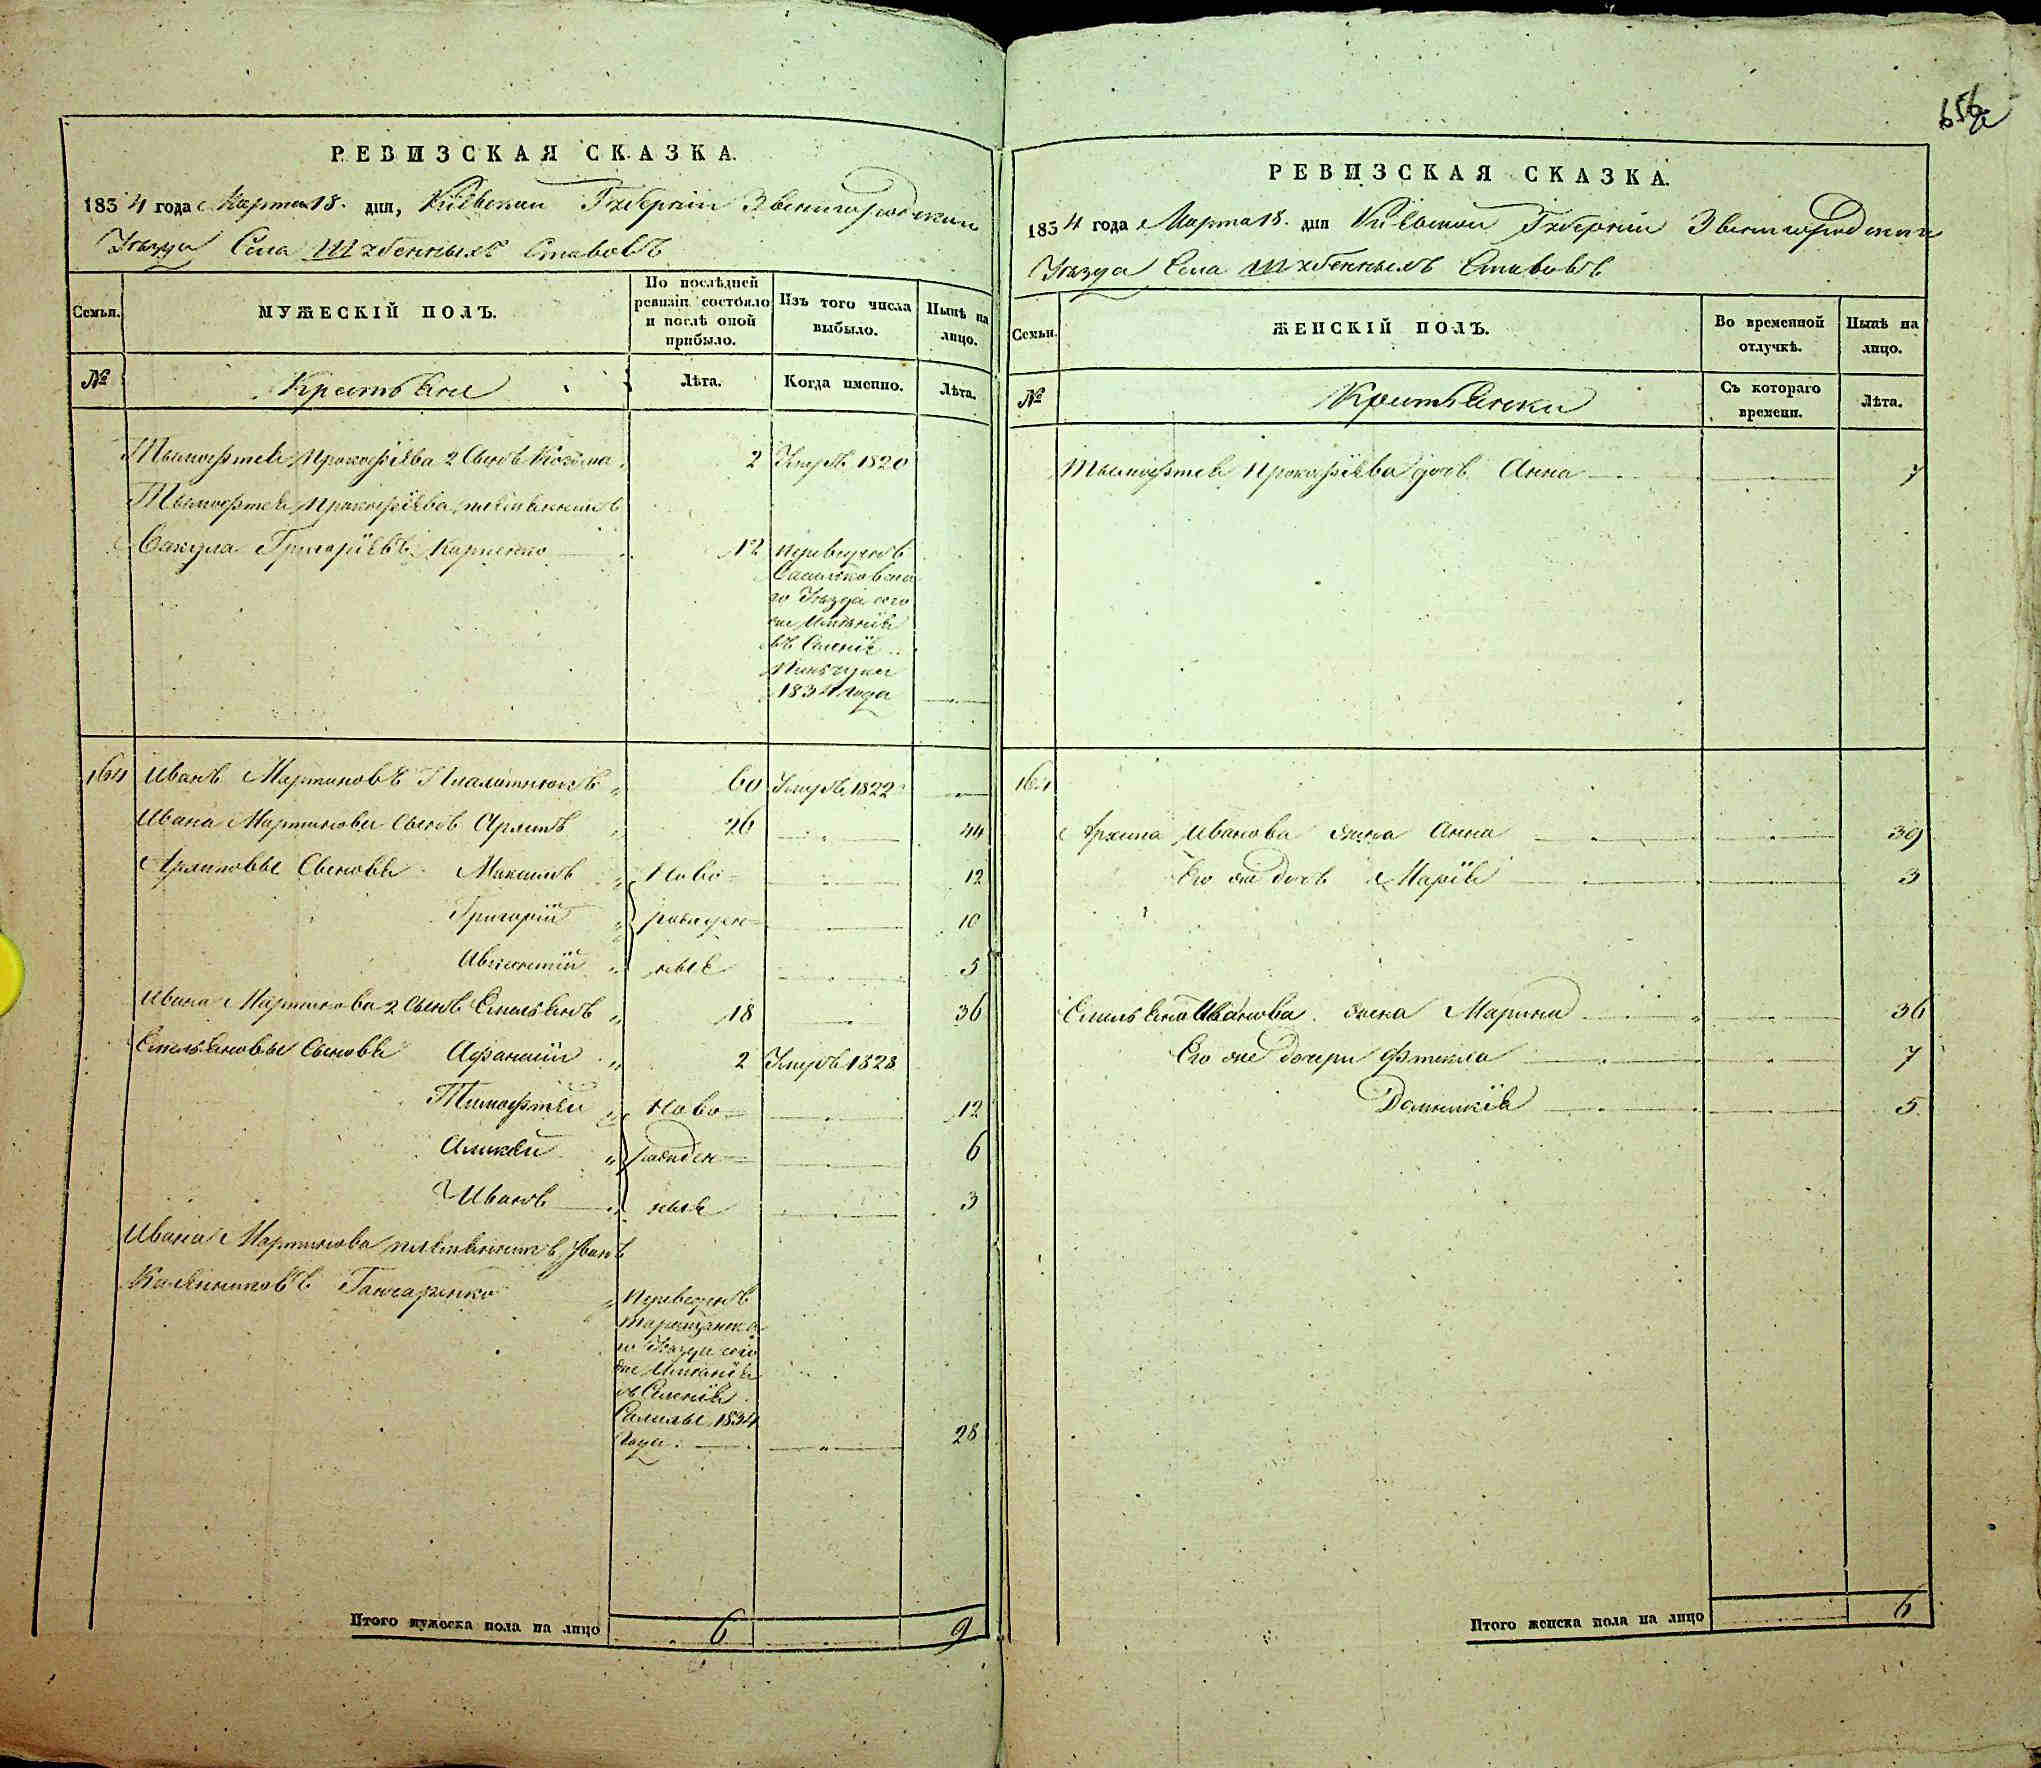 656
РЕВИЗСКАЯ СКАЗКА.
1834 года Марта 18. дня, Кіевской Губерніи Звенигородскаго
Уѣзда Села Шубенныхъ Ставовъ
Семьи.
МУЖЕСКІЙ ПОЛЪ.
По послѣдней ревизіи состояло и послѣ оной прибыло.
Изъ того числа выбыло.
Нынѣ на лицо.
№
Крестьяне
Лѣта.
Когда именно.
Лѣта.
Тымофтея Прокофіева 2 Сынъ Козьма 2 Умръ 1820
Тымофтея Прокофіева племянникъ
Вакула Григоріевъ Карпенко 12 переведенъ
Васильковска
го Уѣзда сего
же Имѣнія
въ Селеніе
Пинчуки
1834 года
164 Иванъ Мартиновъ 60 Умръ 1822
Ивана Мартинова Сынъ Архипъ 26 44
Архиповы Сыновья Максимъ Ново 12
Григорій рожден 10
Авксентій ные 5
Ивана Мартинова 2 Сынъ Емельянъ 18 36
Емельяновы Сыновья Афанасій 2 Умръ 1828
Тимофтей Ново 12
Алексей рожден 6
Иванъ ные 3
Ивана Мартинова племянникъ Иванъ
Калениковъ Гончаренко Переведенъ
Таращанска
го Уѣзда сего
же Имѣнія
въ Селенія
1834
года 28
Итого мужеска пола на лицо 6 9
РЕВИЗСКАЯ СКАЗКА.
1834 года Марта 18. дня Кіевской Губерніи Звенигородскаго
Уѣзда Села Шубенныхъ Ставовъ
Семьи.
ЖЕНСКІЙ ПОЛЪ.
Во временной отлучкѣ.
Нынѣ на лицо.
№
Крестьянки
Съ котораго времени.
Лѣта.
Тымофтея Прокофіева дочь Анна 7
164
Архипа Иванова жена Анна 39
Его же дочь Марія 3
Емельяна Иванова жена Марина 36
Его же дочери Фтекла 7
Домникія 5
Итого женска пола на лицо 6